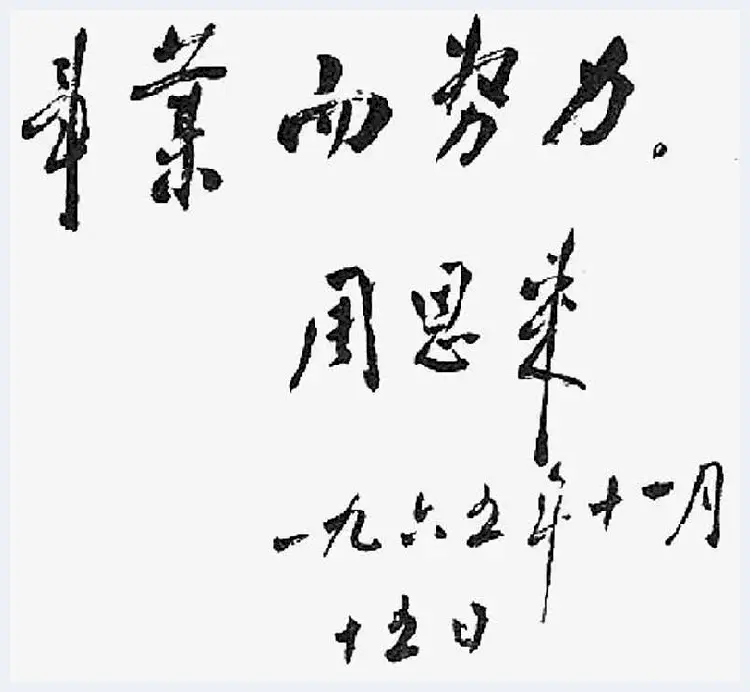 事業而努力.
周恩来
一九六五年十一月
十五日